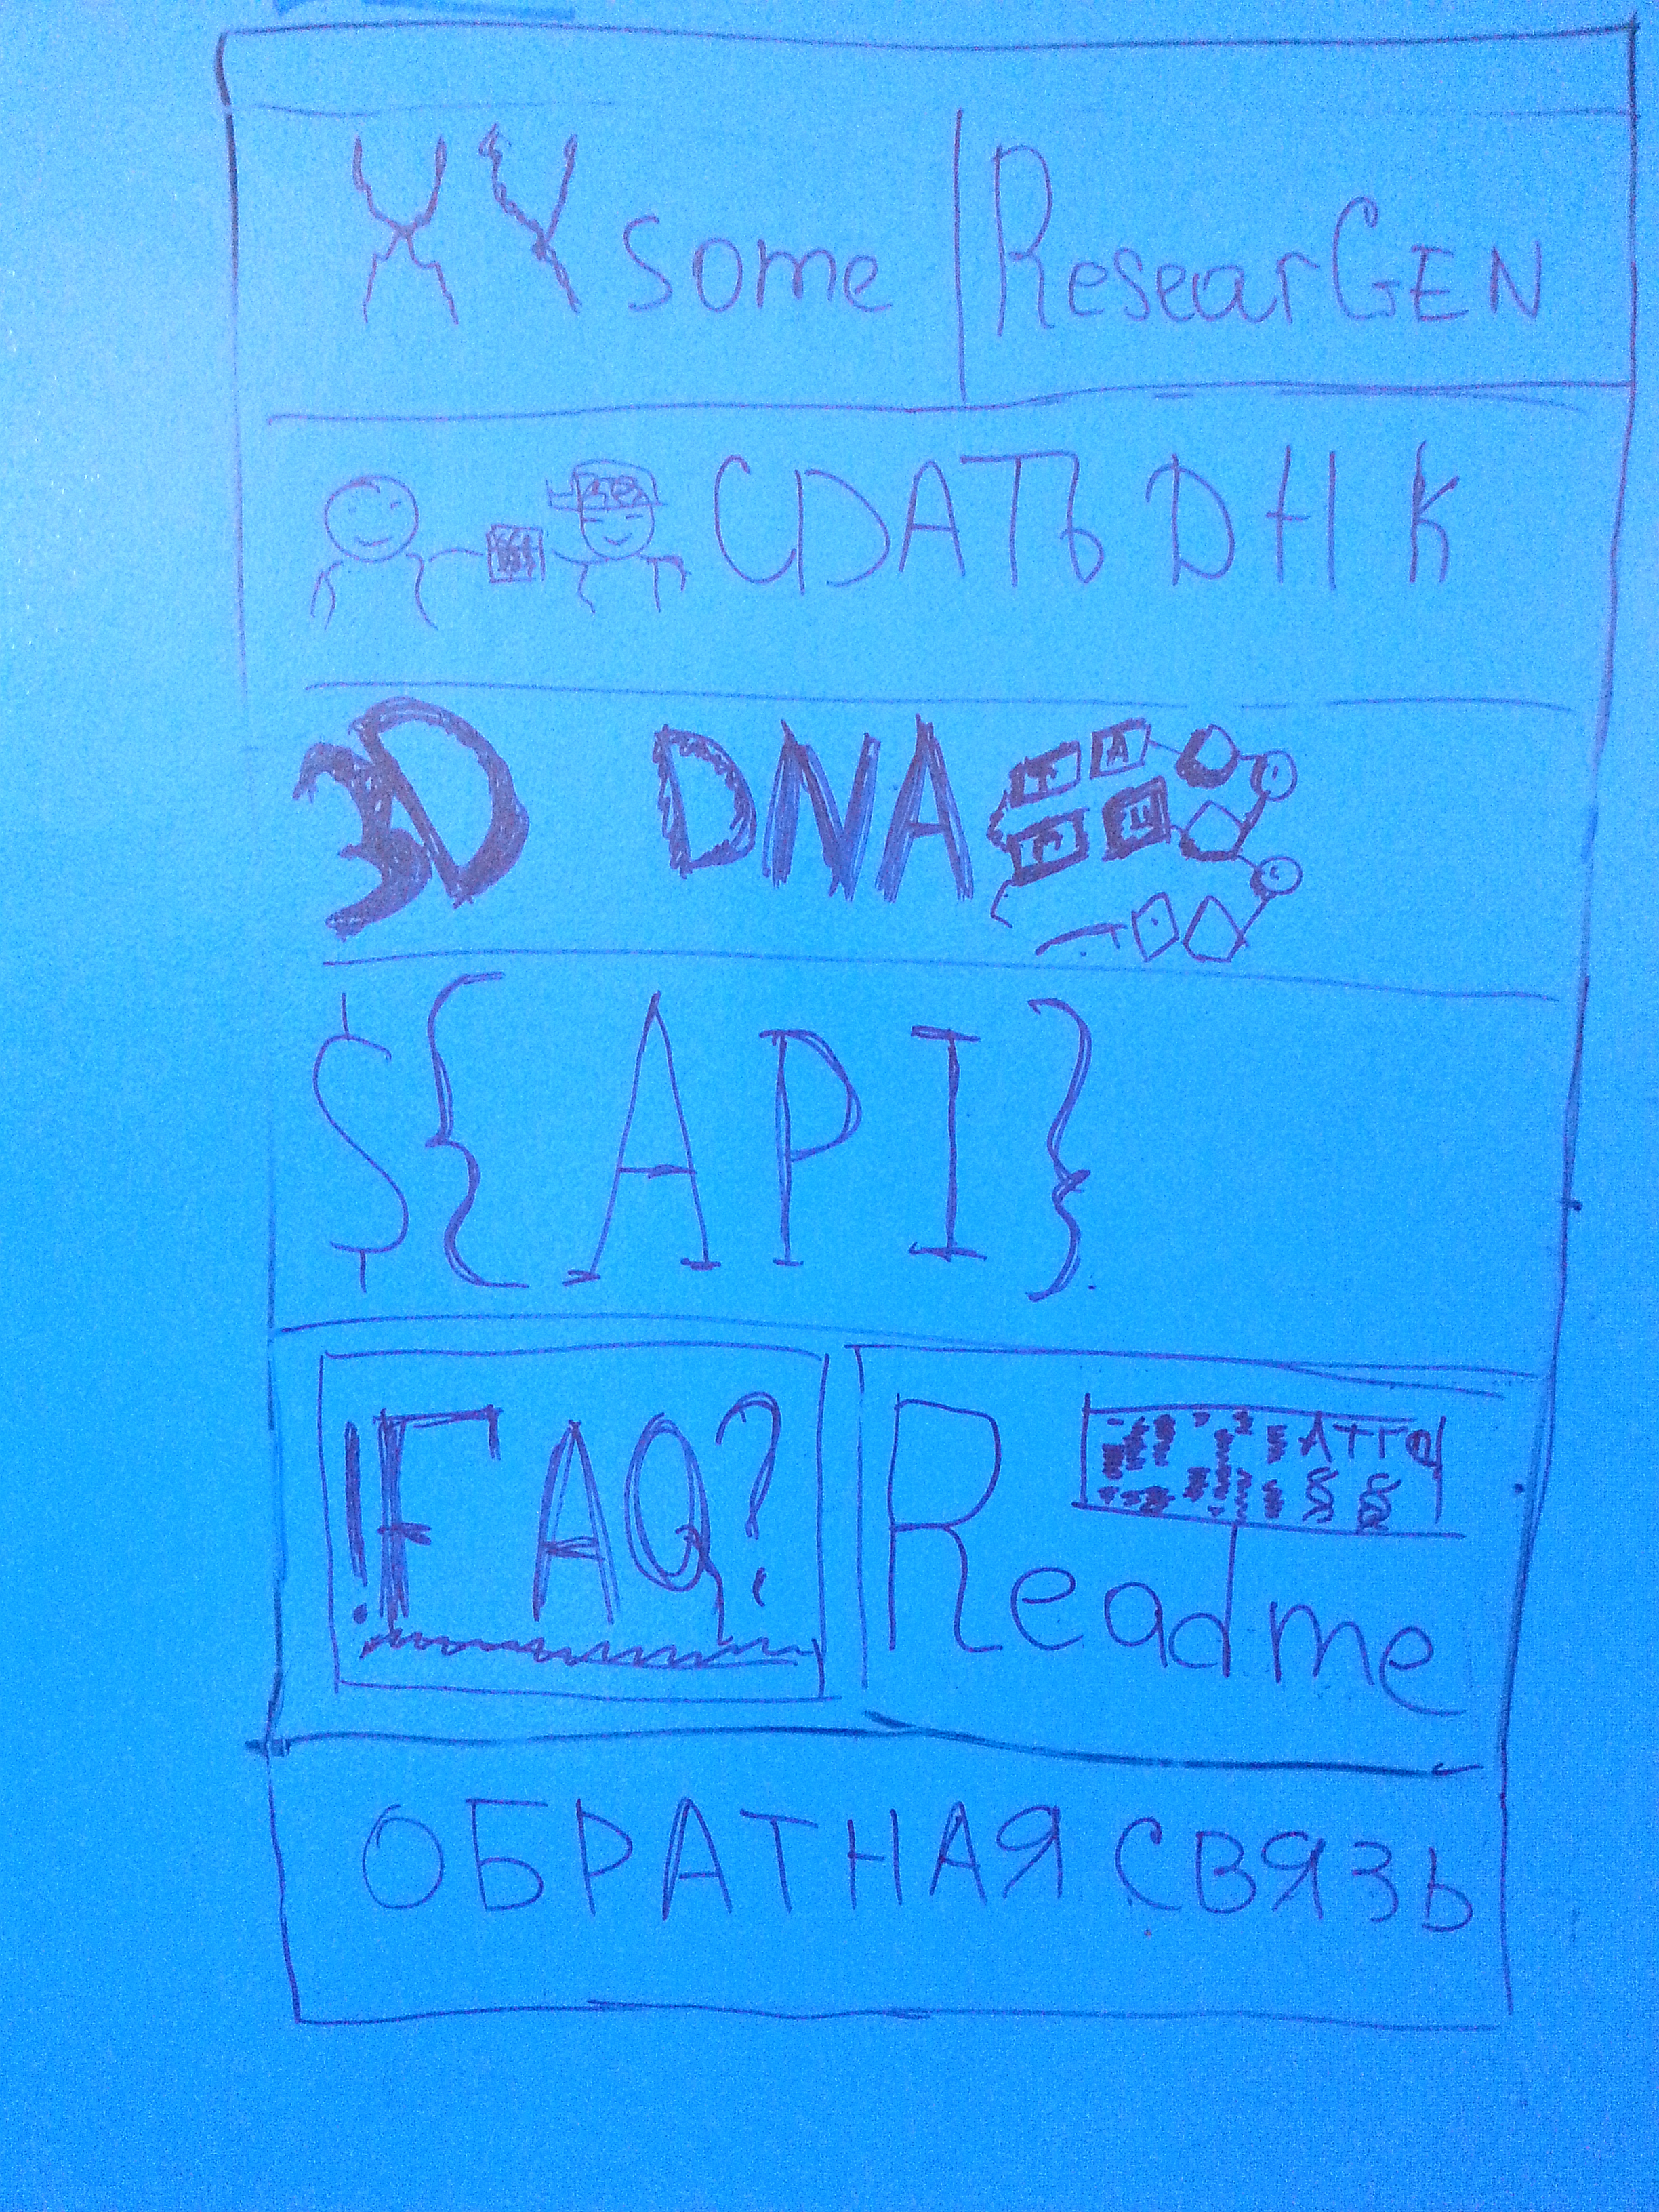 XYsome ResearGEN
СДАТЬ DНК
3D DNA
A
${API}
!FAQ?
ATTG
Readme
ОБРАТНАЯ СВЯЗЬ